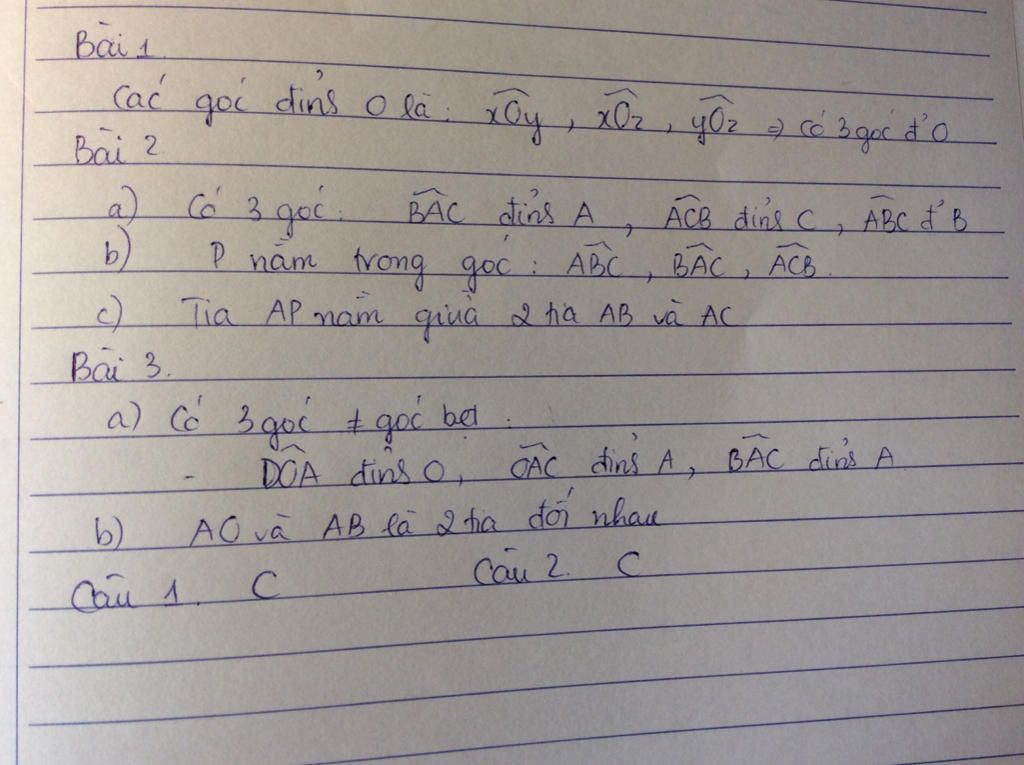 Bài 1.
Các góc đỉnh O là: xOy, xOz, yOz ⇒ có 3 góc đ' O
Bài 2
a) Có 3 góc: BAC đỉnh A, ACB đỉnh C, ABC đ' B
b) P nằm trong góc: ABC, BAC, ACB.
c) Tia AP nằm giữa 2 tia AB và AC
Bài 3.
a) Có 3 góc ≠ góc bẹt:
- DOA đỉnh O, OAC đỉnh A, BAC đỉnh A
b) AO và AB là 2 tia đối nhau
Câu 1. C Câu 2. C